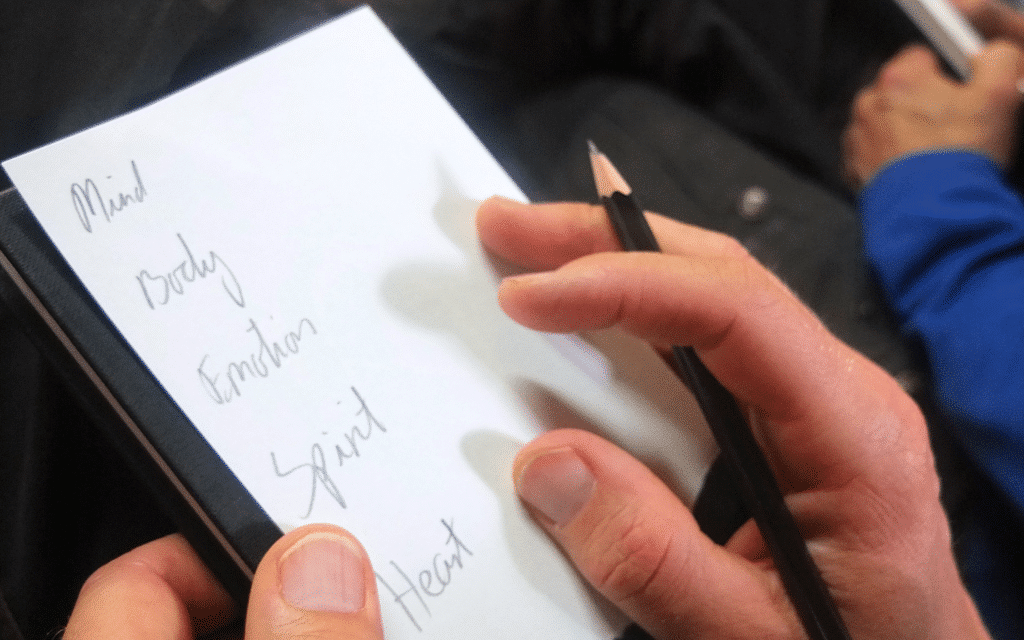 Mind
Body
Emotion
Spirit
Heart